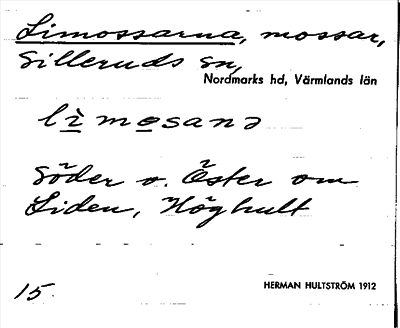 Limossarna, mossar,
Silleruds sn,
Nordmarks hd, Värmlands län
lì mosanə
Söder o. Öster om
Liden, Höghult
15.
HERMAN HULTSTRÖM 1912